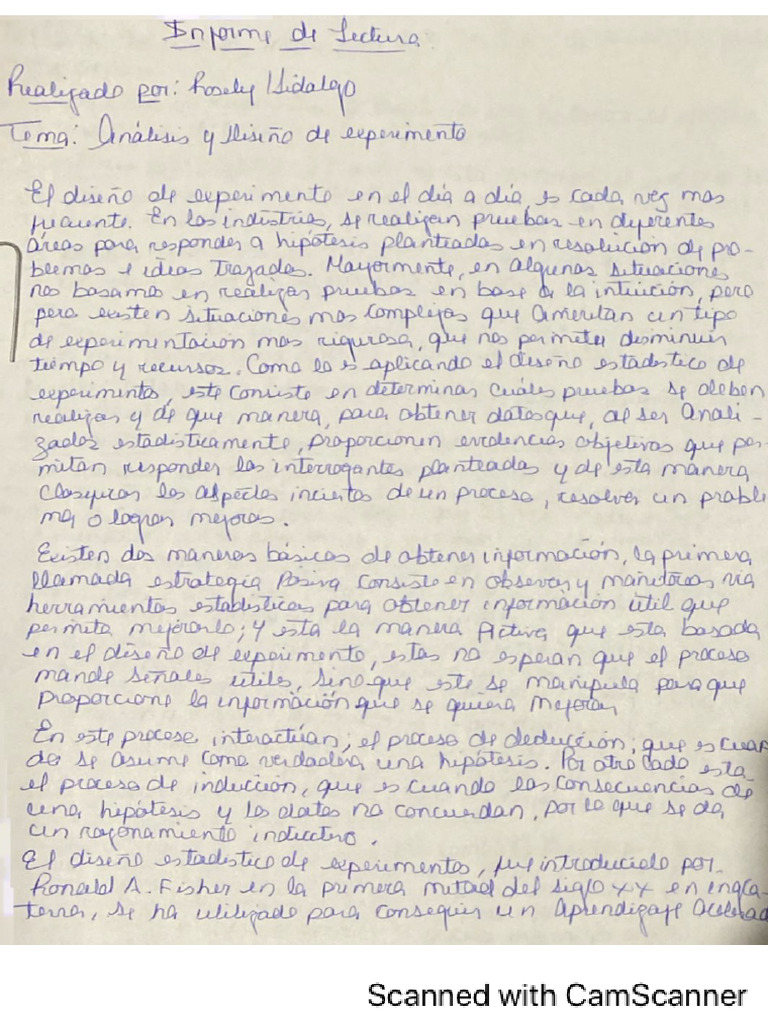 Informe de Lectura
Realizado por: Rosely Hidalgo
Tema: Análisis y diseño de experimento
El diseño de experimento en el dia a dia, es cada vez mas
frecuente. En las industrias, se realizan pruebas en diferentes
áreas para responder a hipótesis planteadas en resolución de pro-
blemas e ideas trazadas. Mayormente, en algunas situaciones
nos basamos en realizar pruebas en base a la intuición, pero
pero existen situaciones mas complejas que ameritan un tipo
de experimentación mas rigurosa, que nos permita disminuir
tiempo y recursos. Como lo es aplicando el diseño estadistico de
experimentos, este consiste en determinar cuáles pruebas se deben
realizar y de que manera, para obtener datos que, al ser anali-
zados estadisticamente, proporcionen evidencias objetivas que per-
mitan responder las interrogantes planteadas y de esta manera
clarificar los aspectos inciertos de un proceso, resolver un proble
ma o lograr mejoras.
Existen dos maneras básicas de obtener información, la primera
llamada estrategia Pasiva consiste en observar y monitorear via
herramientas estadisticas para obtener información útil que
permita mejorarlo; y esta la manera Activa que esta basada
en el diseño de experimento, estas no esperan que el proceso
mande señales útiles, sino que este se manipula para que
proporcione la información que se quiera mejorar.
En este proceso interactúan; el proceso de deducción; que es cuan
do se asume como verdadera una hipótesis. Por otro lado esta
el proceso de inducción, que es cuando las consecuencias de
una hipótesis y los datos no concuerdan, por lo que se da
un razonamiento inductivo.
El diseño estadistico de experimentos, fue introducido por
Ronald A. Fisher en la primera mitad del siglo XX en ingla-
terra, se ha utilizado para conseguir un aprendizaje acelerad
Scanned with CamScanner